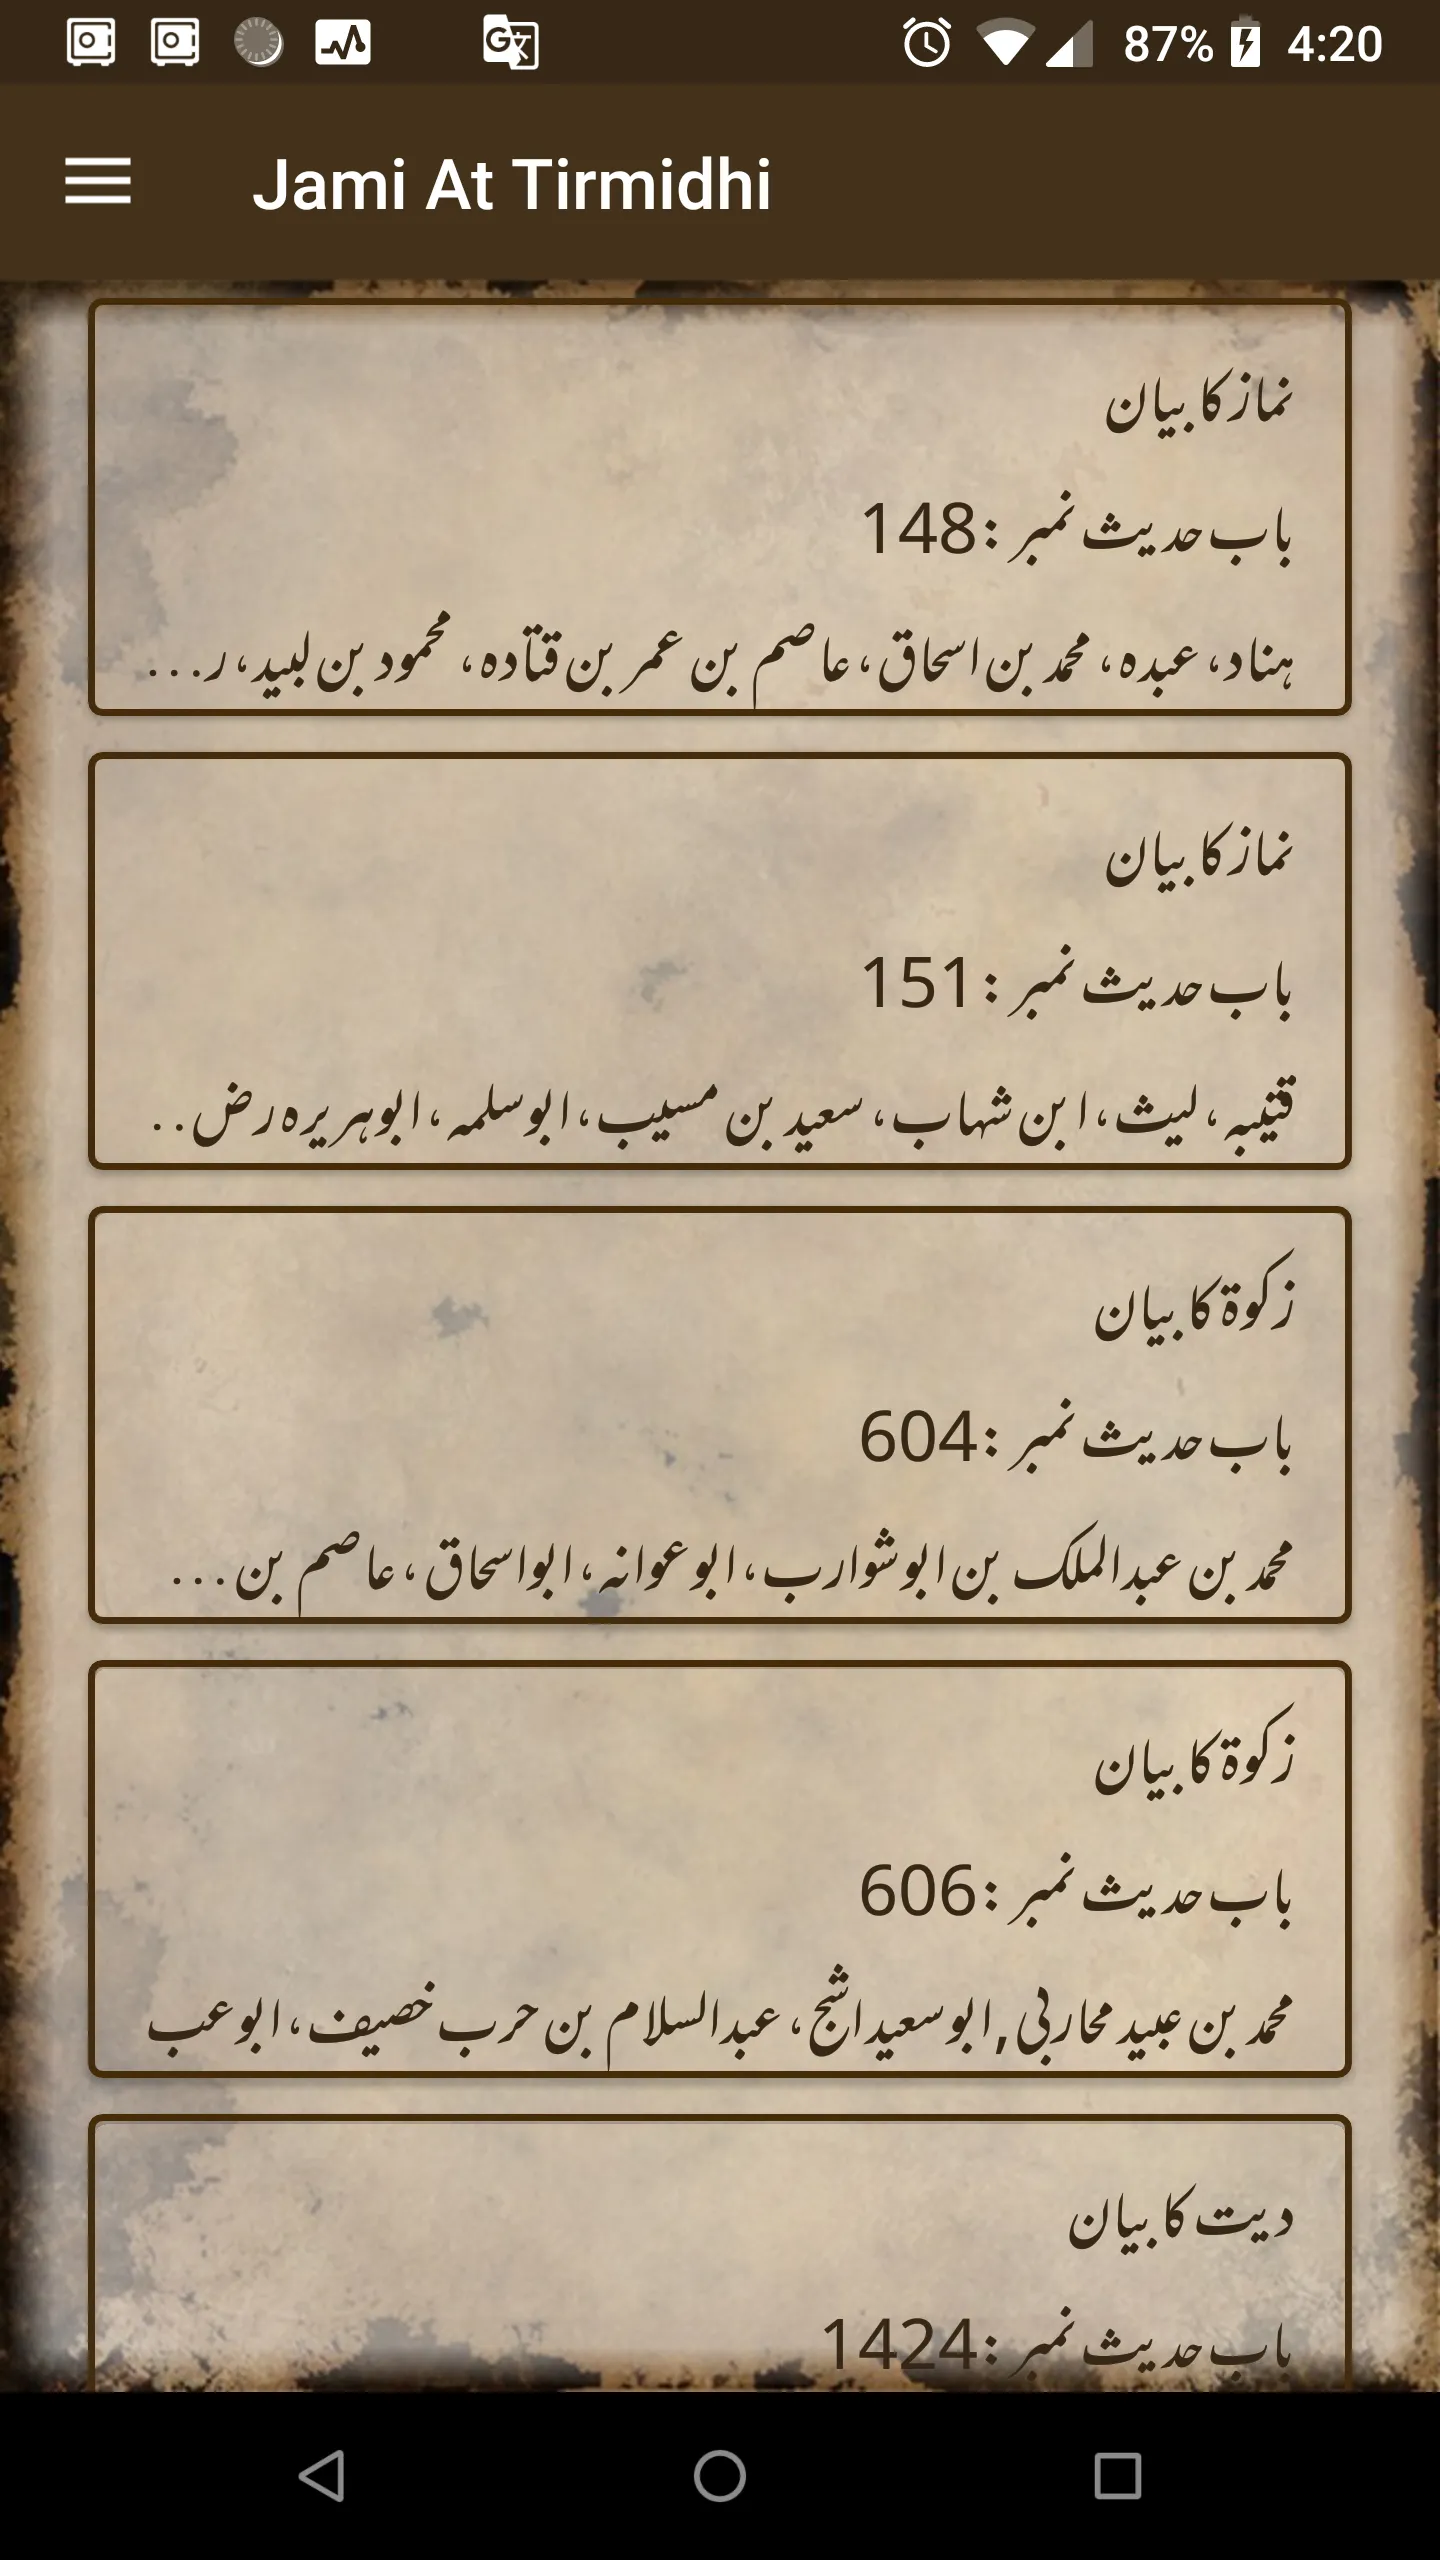 87% 4:20
Jami At Tirmidhi
نماز کا بیان
باب حدیث نمبر : 148
ہناد، عبدہ، محمد بن اسحاق، عاصم بن عمر بن قتادہ، محمود بن لبید، ر...
نماز کا بیان
باب حدیث نمبر : 151
قتیبہ، لیث، ابن شہاب، سعید بن مسیب، ابوسلمہ، ابوہریرہ رض..
زکوۃ کا بیان
باب حدیث نمبر : 604
محمد بن عبدالملک بن ابوشوارب، ابوعوانہ، ابواسحاق، عاصم بن...
زکوۃ کا بیان
باب حدیث نمبر : 606
محمد بن عبید محاربی, ابوسعیداشج، عبدالسلام بن حرب خصیف، ابوعب
دیت کا بیان
باب حدیث نمبر : 1424